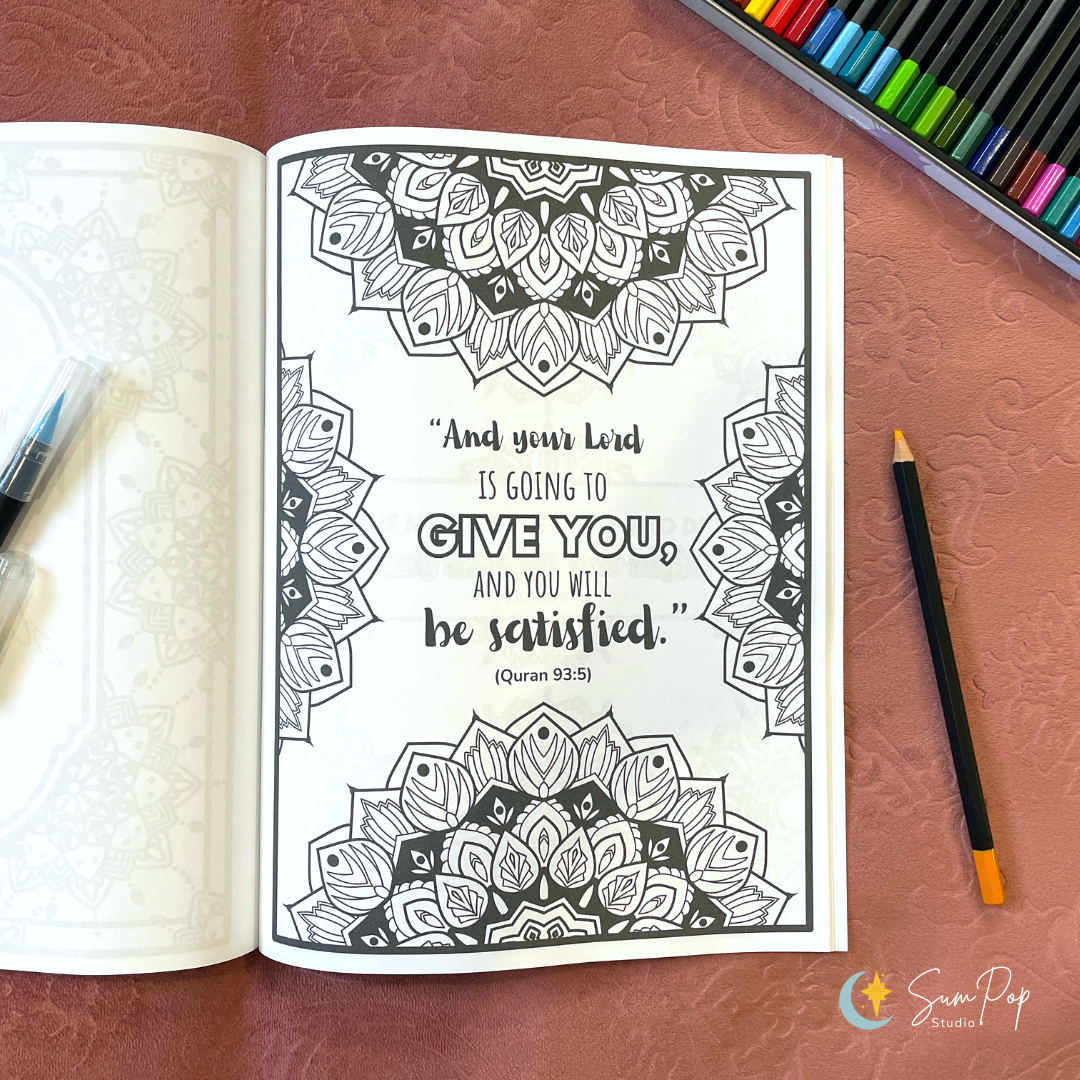 “And your Lord
IS GOING TO
GIVE YOU,
AND YOU WILL
be satisfied.”
(Quran 93:5)
SumPop
Studio